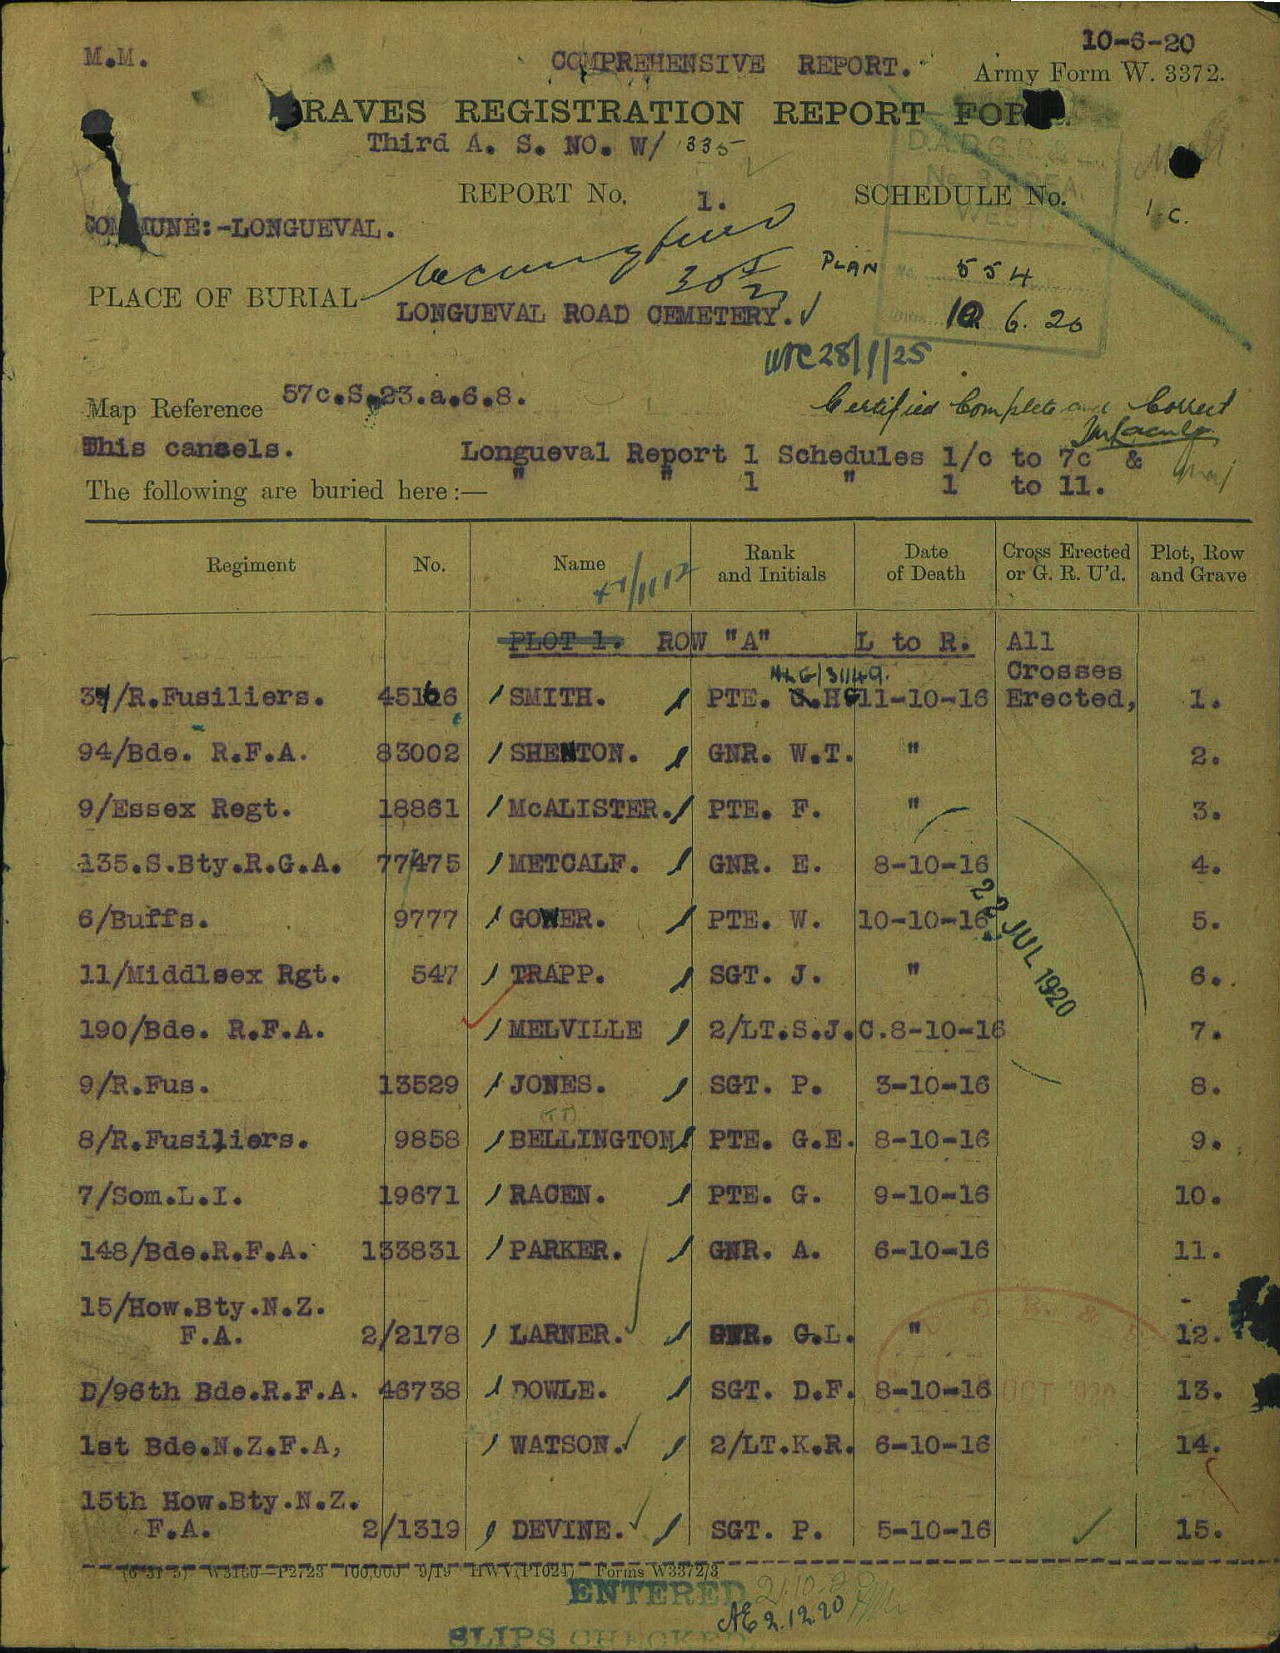 10-6-20
M.M.
COMPREHENSIVE REPORT.
Army Form W. 3372.
RAVES REGISTRATION REPORT FOR
Third A. S. NO. W/ 335
D.A.D.G.R. &
No. 3 AREA
WEST.
REPORT No. 1. SCHEDULE No. 1-C.
COMMUNE:-LONGUEVAL.
PLAN No. 554
PLACE OF BURIAL LONGUEVAL ROAD CEMETERY.
10 6. 20
28/1/25
Map Reference 57c.S.23.a.6.8.
Certified Complete and Correct
This cancels. Longueval Report 1 Schedules 1/c to 7c &
" " 1 " 1 to 11.
The following are buried here:—
Regiment No. Name Rank and Initials Date of Death Cross Erected or G. R. U'd. Plot, Row and Grave
PLOT 1. ROW "A" L to R. All Crosses Erected,
/R.Fusiliers. 45166 SMITH. PTE. 11-10-16 1.
94/Bde. R.F.A. 83002 SHENTON. GNR. W.T. " 2.
9/Essex Regt. 18861 McALISTER. PTE. F. " 3.
135.S.Bty.R.G.A. 77475 METCALF. GNR. E. 8-10-16 4.
6/Buffs. 9777 GOWER. PTE. W. 10-10-16 5.
22 JUL 1920
11/Middlsex Rgt. 547 TRAPP. SGT. J. " 6.
190/Bde. R.F.A. MELVILLE 2/LT.S.J.C. 8-10-16 7.
9/R.Fus. 13529 JONES. SGT. P. 3-10-16 8.
8/R.Fusiliers. 9858 BELLINGTON PTE. G.E. 8-10-16 9.
7/Som.L.I. 19671 RACEN. PTE. G. 9-10-16 10.
148/Bde.R.F.A. 133831 PARKER. GNR. A. 6-10-16 11.
15/How.Bty.N.Z.
F.A. 2/2178 LARNER. GNR. G.L. " 12.
D/96th Bde.R.F.A. 46738 DOWLE. SGT. D.F. 8-10-16 13.
1st Bde.N.Z.F.A, WATSON. 2/LT.K.R. 6-10-16 14.
15th How.Bty.N.Z.
F.A. 2/1319 DEVINE. SGT. P. 5-10-16 15.
(6 31 5) W3160—P2723 100,000 9/19 HWV(P1024) Forms W3372/3
ENTERED
AE 2.12.20
SLIPS CHECKED